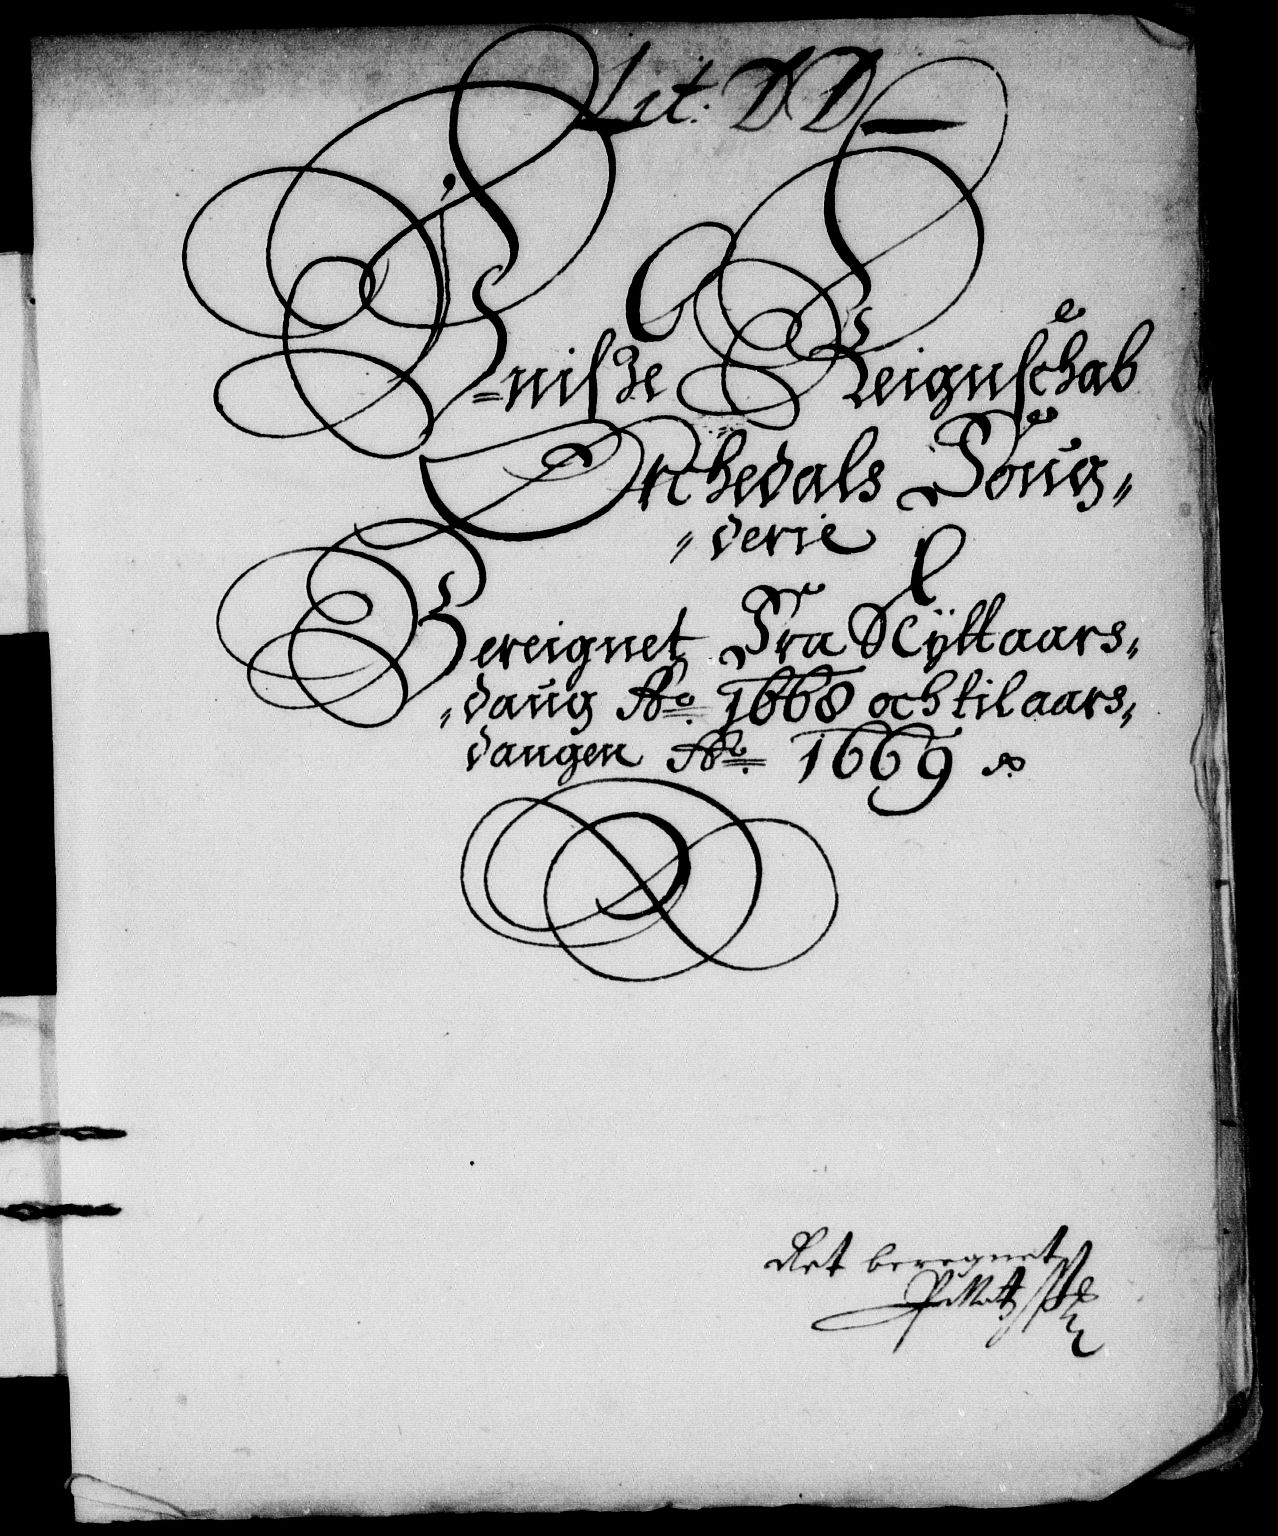 Lit. DD
=niſze Reignſchab
Orchedals Foug„
„derie
Bereignet Fra Nÿttaars„
„daug Ao 1668 och til aars„
dangen Ao 1669
Ret beregnet